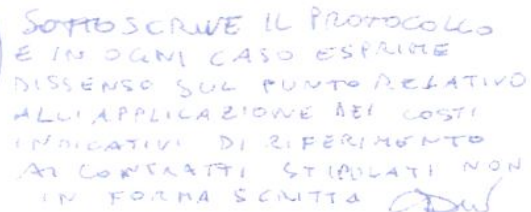 SOTTOSCRIVE IL PROTOCOLLO
E IN OGNI CASO ESPRIME
DISSENSO SUL PUNTO RELATIVO
ALL'APPLICAZIONE DEI COSTI
INDICATIVI DI RIFERIMENTO
AI CONTRATTI STIPULATI NON
IN FORMA SCRITTA